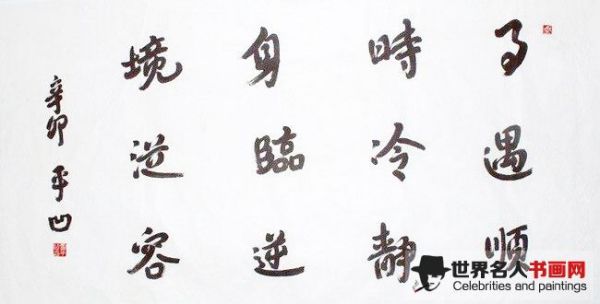 事遇顺
時冷静
身臨逆
境從容
辛卯 平凹
世界名人书画网
Celebrities and paintings